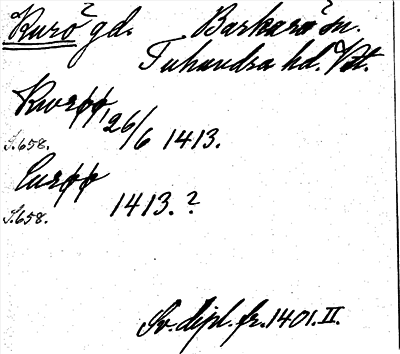 Kurö gd. Barkarö sn.
Tuhundra hd. Vstm.
Kwrøø, 26/6 1413.
S.658.
Curøø 1413.?
S.658.
Sv. dipl. fr. 1401. II.